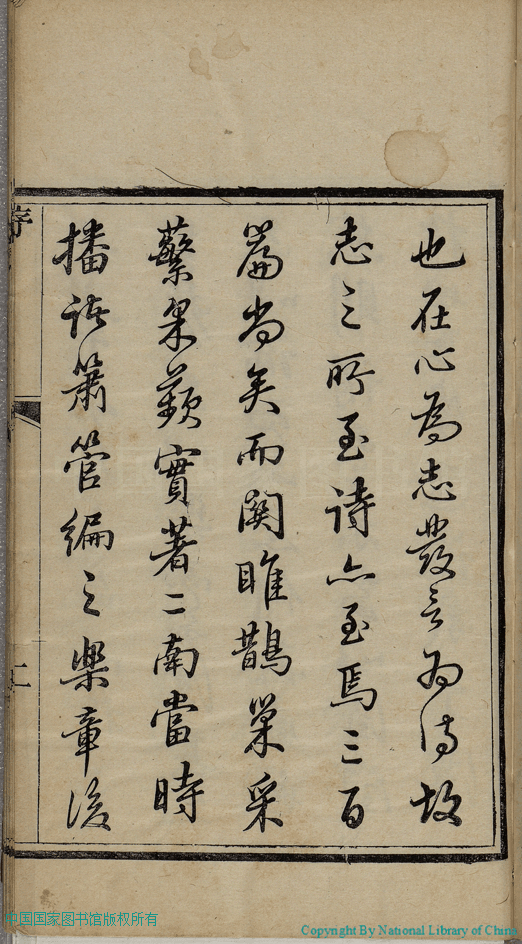 也在心為志發言為詩故
志之所至詩亦至焉三百
篇尚矣而關雎鵲巢采
蘩采蘋實著二南當時
播諸簫管編之樂章後
序
二
中国国家图书馆版权所有
Copyright By National Library of China